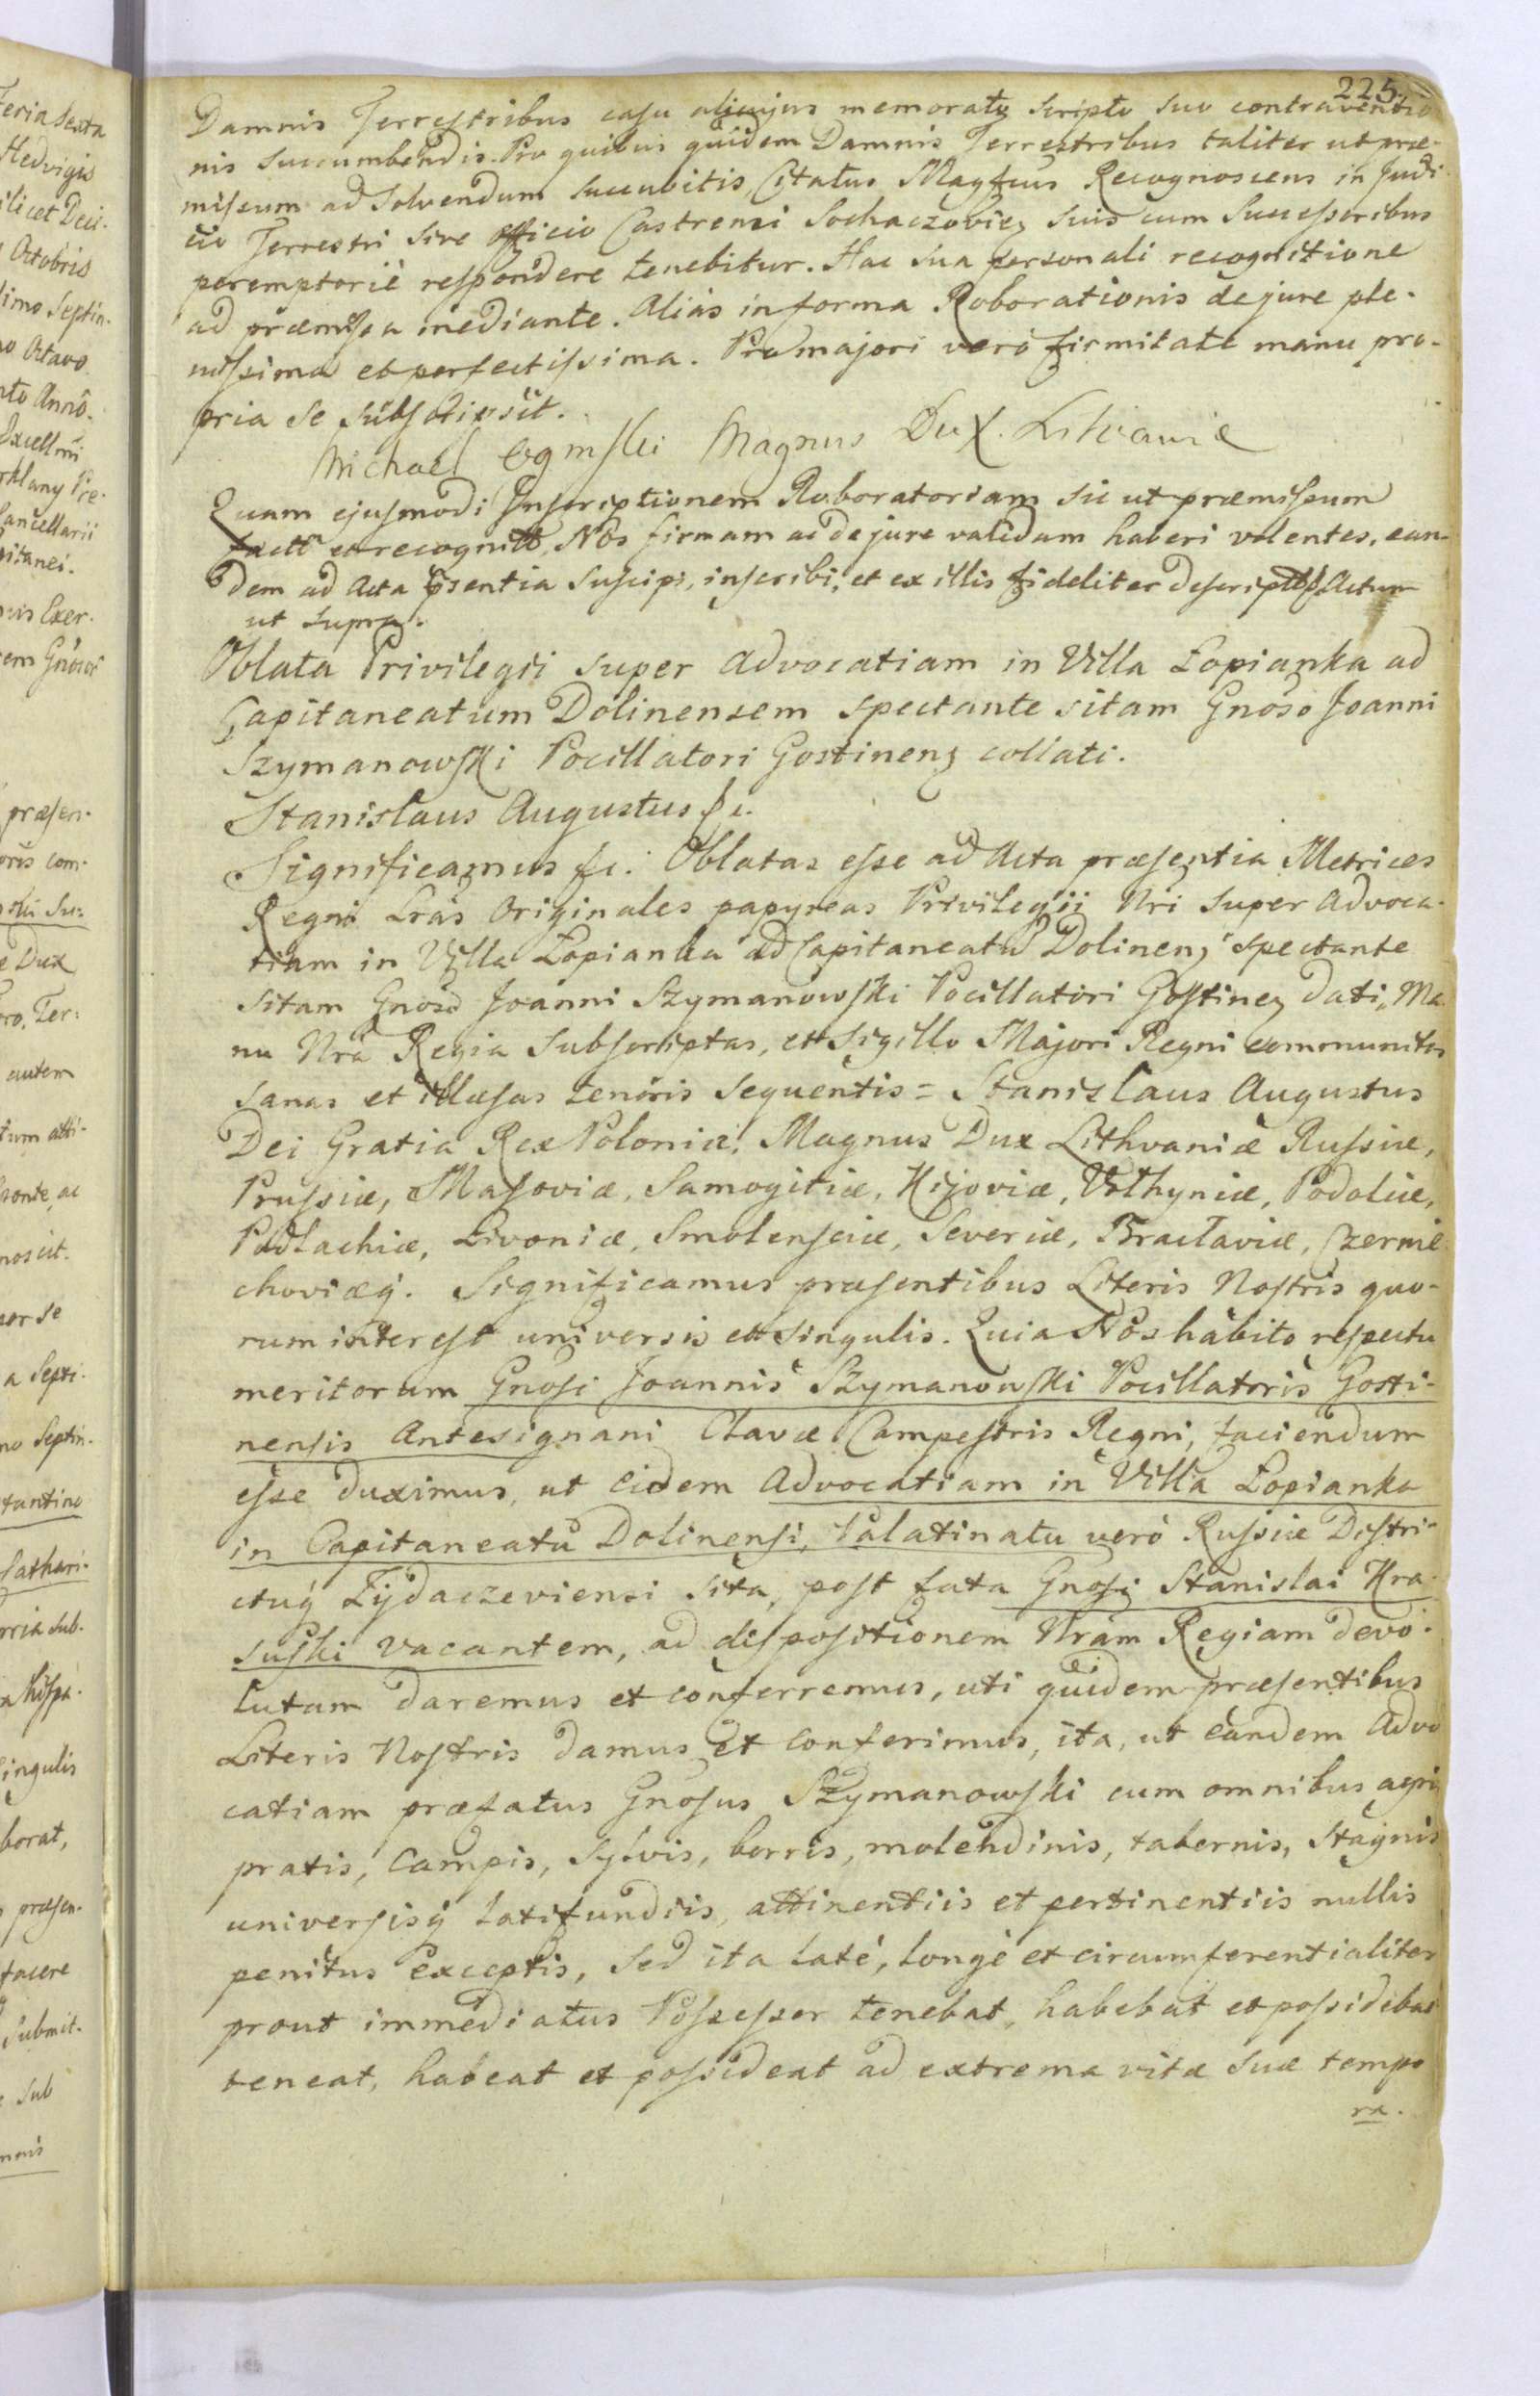 225.
Damnis Terrestribus casu alicujus memoratæ scripto suo contraventio
nis succumbendis. Pro quibus quidem Damnis Terrestribus taliter ut præ-
missum ad solvendum succubitis, Citatus Magfcus Recognoscens in Judi-
cio Terrestri sive Officio Castrensi Sochaczovien, suis cum Successoribus
peremptoriè respondere tenebitur. Hac sua personali recognitione
ad præmissa mediante. Aliàs in forma Roborationis de jure ple-
nissima et perfectissima. Pro majori verò firmitate manu pro-
pria se subscripsit.
Michael Oginski Magnus Dux. Litvaniæ
Quam ejusmodi Inscriptionem Roboratoriam sic ut præmissum
et recognitt, Nos firmam ac de jure validam haberi volentes, ean-
dem ad Acta psentia suscipi, inscribi, et ex illis fideliter Actum
ut supra.
Oblata Privilegii super Advocatiam in Villa Łopianka ad
Capitaneatum Dolinensem spectante sitam Gnoso Joanni
Szymanowski Pocillatori Gostinen, collati.
Stanislaus Augustus &c.
Significamus &c. Oblatas esse ad Acta præsentia Metrices
Regni Lras Originales papyreas Privilegii Nri super Advoca-
tiam in Villa Łopianka ad Capitaneatū Dolinen, spectante
sitam Gnoso Joanni Szymanowski Pocillatori Gostinen, dati, Ma-
nu Nra Regia Subscriptas, et Sigillo Majori Regni communitas
sanas et illæsas tenoris sequentis = Stanislaus Augustus
Dei Gratia Rex Poloniæ, Magnus Dux Lithvaniæ Russiæ,
Prussiæ, Masoviæ, Samogitiæ, Kijoviæ, Volhyniæ, Podoliæ,
Podlachiæ, Livoniæ, Smolensciæ, Severiæ, Bractaviæ, Czernie-
choviæq. Significamus præsentibus Literis Nostris quo-
rum interest universis et singulis. Quia Nos habito respectu
meritorum Gnosi Joannis Szymanowski Pocillatoris Gosti-
nensis Antesignani Clavæ Campestris Regni, faciendum
esse duximus, ut eidem Advocatiam in Villa Łopianka
in Capitaneatu Dolinensi, Palatinatu verò Russiæ Distri-
ctuq Zydaczeviensi sita, post fata Gnosi Stanislai Kra-
suski vacantem, ad dispositionem Nram Regiam devo-
lutam daremus et conferremus, uti quidem præsentibus
Literis Nostris damus et conferimus, ita, ut eandem Advo
catiam præfatus Gnosus Szymanowski cum omnibus agri
pratis, campis, sylvis, borris, molendinis, tabernis, stagnis
universisq latifundiis, attinentiis et pertinentiis nullis
penitus exceptis, sed ita latè, longè et circumferentialiter
prout immediatus Possessor tenebat, habebat et possidebat
teneat, habeat et possideat ad extrema vitæ suæ tempo
ra.